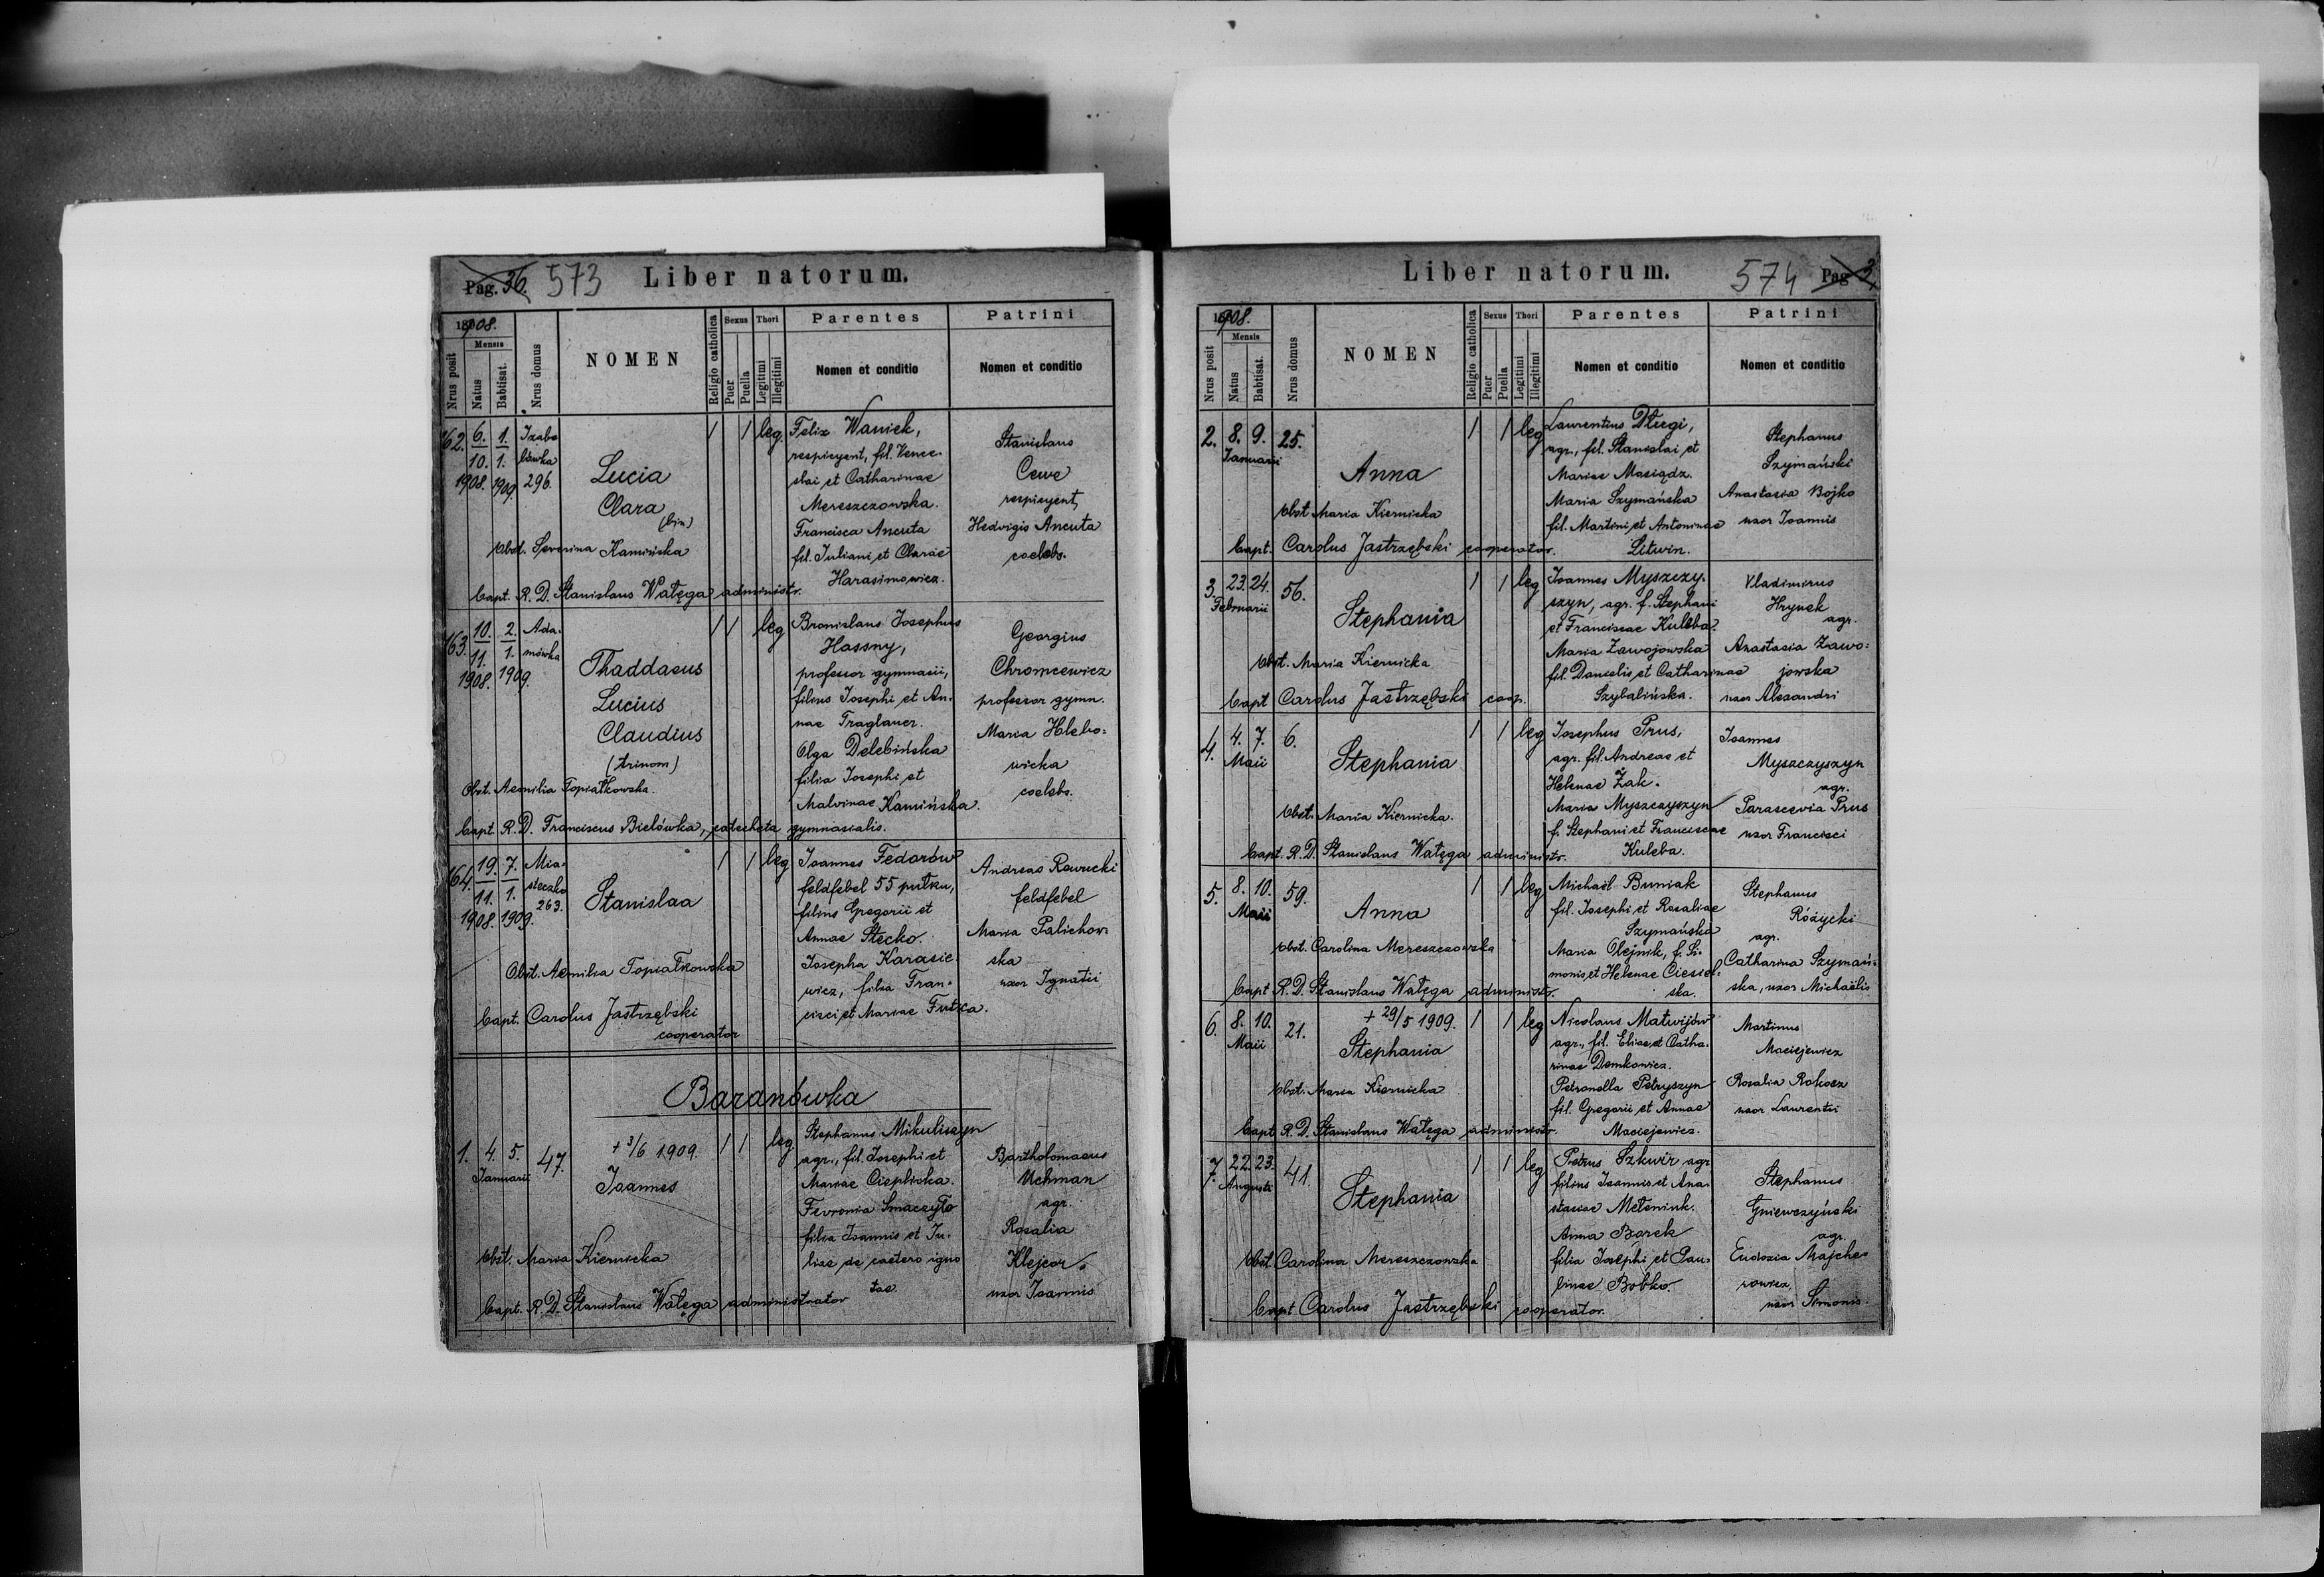 Pag. 36. 573 Liber natorum.
1908.
Mensis
Nrus posit
Natus
Babtisat.
Nrus domus
NOMEN
Religio catholica
Sexus
Puer
Puella
Thori
Legitimi
Illegitimi
Parentes
Nomen et conditio
Patrini
Nomen et conditio
162. 6. 10. 1908. 1. 1. 1909. Izabe
lówka
296.
Lucia
Clara
(bin)
Obst. Severina Kamińska
1 1 leg.
Felix Waniek,
respicyent, fil. Vence-
slai et Catharinae
Mereszczowska.
Francisca Ancuta
fil. Juliani et Clarae
Harasimowicz.
Stanislaus
Cewe
respicyent
Hedvigis Ancuta
coelebs.
Bapt. R. D. Stanislaus Wałęga administr.
163. 10. 11. 1908. 2. 1. 1909. Ada-
mówka
Thaddaeus
Lucius
Claudius
(trinom)
Obst. Aemilia Topiatkowska.
1 1 leg
Bronislaus Josephus
Hassny,
professor gymnasii,
filius Josephi et An-
nae Traglauer.
Olga Delebińska
filia Josephi et
Malvinae Kamińska.
Georgius
Chromcewicz
professor gymn.
Maria Hlebo-
wicka
coelebs.
Bapt. R. D. Franciscus Bielówka, catecheta gymnasialis.
164. 19. 11. 1908. 7. 1. 1909. Mia-
steczko
263.
Stanislaa
Obst. Aemilia Topiatkowska
1 1 leg
Joannes Fedorów
feldfebel 55 pułku,
filius Gregorii et
Annae Stecko.
Josepha Karasie
wicz, filia Fran-
cisci et Mariae Futka.
Andreas Rawucki
feldfebel
Maria Palichow-
ska
uxor Ignatii
Bapt. Carolus Jastrzębski
cooperator
Baranówka
1. 4. 5. Januarii 47.
+ 3/6 1909.
Joannes
Obst. Maria Kiernicka
1 1 leg
Stephanus Mikuliszyn
agr., fil. Josephi et
Mariae Cieplicka.
Fevronia Smaczyło
filia Joannis et Ju-
liae de caetero igno
tae
Bartholomaeus
Uchman
agr.
Rosalia
Klejcor
uxor Joannis
Bapt. R. D. Stanislaus Wałęga administrator
Liber natorum. 574 Pag. 3
1908.
Mensis
Nrus posit
Natus
Babtisat.
Nrus domus
NOMEN
Religio catholica
Sexus
Puer
Puella
Thori
Legitimi
Illegitimi
Parentes
Nomen et conditio
Patrini
Nomen et conditio
2. 8. 9. Januarii 25.
Anna
Obst. Maria Kiernicka
1 1 leg
Laurentius Długi,
agr., fil. Stanislai et
Mariae Masiądz.
Maria Szymańska
fil. Martini et Antoninae
Litwin.
Stephanus
Szymański
Anastasia Bojko
uxor Joannis
Bapt. Carolus Jastrzębski cooperator.
3. 23. 24. Februarii 56.
Stephania
Obst. Maria Kiernicka
1 1 leg
Joannes Myszczy-
szyn, agr. f. Stephani
et Franciscae Kuleba.
Maria Zawojowska
fil. Danielis et Catharinae
Szybalińska.
Vladimirus
Hrynek
agr.
Anastasia Zawo-
jowska
uxor Alexandri
Bapt Carolus Jastrzębski coop.
4. 4. 7. Maii 6.
Stephania
Obst. Maria Kiernicka.
1 1 leg
Josephus Prus,
agr. fil. Andreae et
Helenae Żak.
Maria Myszczyszyn
f. Stephani et Franciscae
Kuleba.
Joannes
Myszczyszyn
agr.
Parascevia Prus
uxor Francisci
Bapt. R. D. Stanislaus Wałęga administr.
5. 8. 10. Maii 59.
Anna
Obst. Carolina Mereszczowska
1 1 leg
Michaël Buniak
fil. Josephi et Rosaliae
Szymańska
Maria Olejnik, f. Si-
monis et Helenae Ciesiel-
ska.
Stephanus
Różycki
agr.
Catharina Szymań-
ska, uxor Michaëlis
Bapt R. D. Stanislaus Wałęga administr.
6. 8. 10. Maii 21.
+ 29/5 1909.
Stephania
Obst. Maria Kiernicka
1 1 leg
Nicolaus Matwijów
agr., fil. Eliae et Catha-
rinae Demkowicz.
Petronella Petryszyn
fil. Gregorii et Annae
Maciejewicz.
Martinus
Maciejewicz
Rosalia Rokosz
uxor Laurentii
Bapt R. D. Stanislaus Wałęga administr.
7. 22. 23. Augusti 41.
Stephania
Obst. Carolina Mereszczowska
1 1 leg
Petrus Szkwir agr
filius Joannis et Ana-
stasiae Metenink.
Anna Borek
filia Josephi et Pau-
linae Bobko.
Stephanus
Gniewczyński
agr.
Eudoxia Majche-
rowicz,
uxor Simonis.
Bapt Carolus Jastrzębski cooperator.